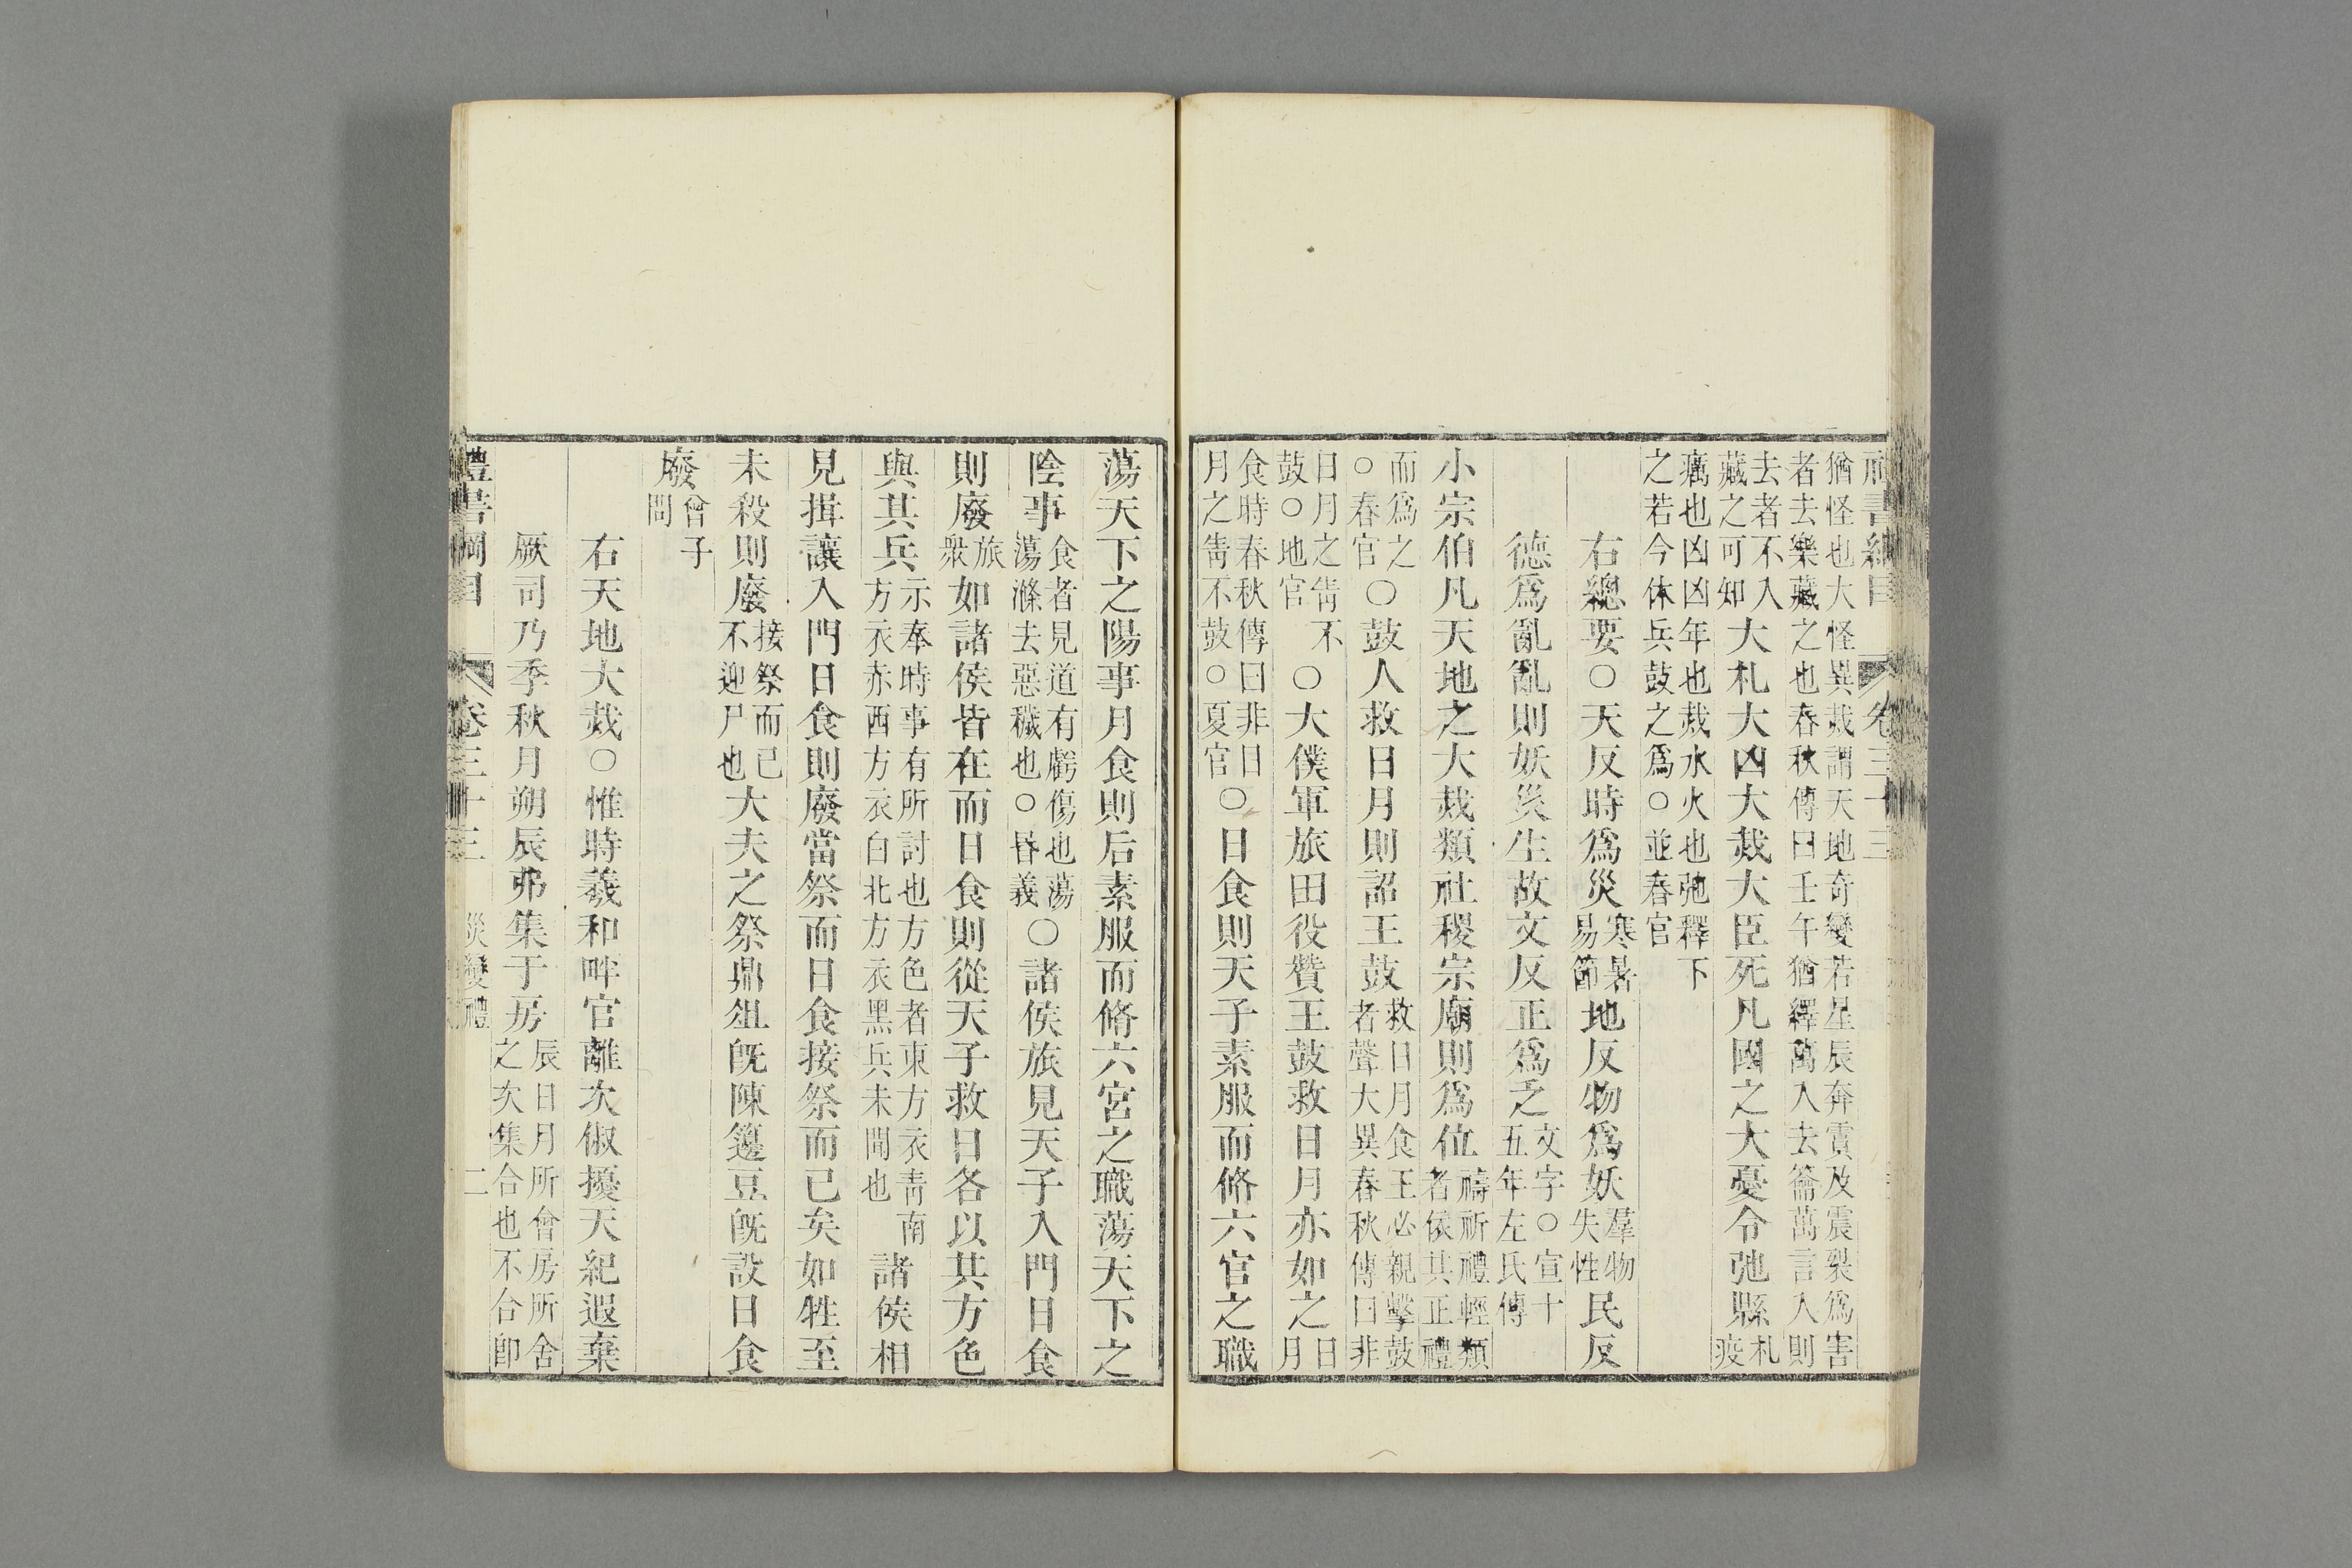 禮書綱目 卷三十三
猶怪也大怪異烖謂天地奇變若星辰奔霣及震裂爲害
者去樂藏之也春秋傳曰壬午猶繹萬入去籥萬言入則
去者不入
藏之可知
大札大凶大烖大臣死凡國之大憂令弛縣
札
疫
癘也凶凶年也烖水火也弛釋下
之若今休兵鼓之爲○並春官
右總要○天反時爲災
寒暑
易節
地反物爲妖
羣物
失性
民反
德爲亂亂則妖災生故文反正爲乏
文字○宣十
五年左氏傳
小宗伯凡天地之大烖類社稷宗廟則爲位
禱祈禮輕類
者依其正禮
而爲之
○春官
○鼓人救日月則詔王鼓
救日月食王必親擊鼓
者聲大異春秋傳曰非
日月之眚不
鼓○地官
○大僕軍旅田役贊王鼓救日月亦如之
日
月
食時春秋傳曰非日
月之眚不鼓○夏官
○日食則天子素服而脩六官之職
蕩天下之陽事月食則后素服而脩六宮之職蕩天下之
陰事
食者見道有虧傷也蕩
蕩滌去惡穢也○昏義
○諸侯旅見天子入門日食
則廢
旅
衆
如諸侯皆在而日食則從天子救日各以其方色
與其兵
示奉時事有所討也方色者東方衣靑南
方衣赤西方衣白北方衣黑兵未聞也
諸侯相
見揖讓入門日食則廢當祭而日食接祭而已矣如牲至
未殺則廢
接祭而已
不迎尸也
大夫之祭鼎俎旣陳籩豆旣設日食
廢
曾子
問
右天地大烖○惟時羲和畔官離次俶擾天紀遐棄
厥司乃季秋月朔辰弗集于房
辰日月所會房所舍
之次集合也不合卽
禮書綱目 卷三十三 災變禮 二